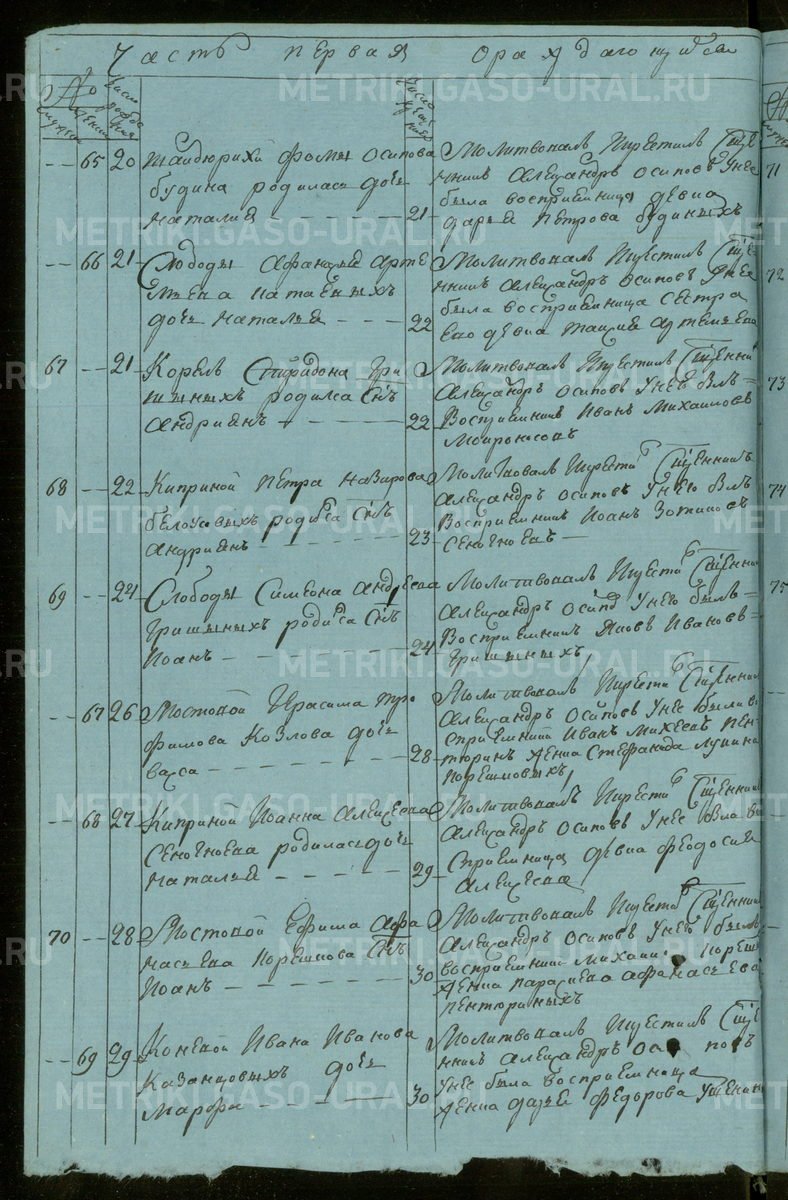 Часть первая о раждающихся
Число рожде ния
Число креще ния
65 20 Шайдюрихи Фомы Осипова
Будина родилась дочь
Наталия 21
Молитвовалъ и крестилъ Сщ҃е
нникъ Александръ Осиповъ у нее
была восприемница девка
Дарья Петрова Будиныхъ
66 21 Слободы Афанасья Арте
мьева Катаевыхъ
дочь Наталья 22
Молитвовалъ и крестилъ Сщ҃е
нникъ Александръ Осиповъ у нее
была восприемница сестра
ево девка Таисия Артемьева
67 21 Корелъ Спиридона Гри
шиныхъ родился Сн҃ъ
Андриянъ 22
Молитвовалъ и крестилъ Сщ҃енни
Александръ Осиповъ у нево былъ
Восприемникъ Иванъ Михаиловъ
Мокроносовъ
68 22 Киприной Петра Назарова
Белоусовыхъ родился Сн҃ъ
Андриянъ 23
Молитвовалъ и крести Сщ҃енникъ
Александръ Осиповъ у нево былъ
Восприемникъ Иоанъ Зотиковъ
69 24 Слободы Симеона Андреева
Гришиныхъ родился Сн҃ъ
Иоанъ 24
Молитвовалъ и крести Сщ҃енник
Александръ Осипо у нево былъ
Восприемникъ Яковъ Ивановъ
Гришиныхъ
67 26 Мостовой Герасима Тро
фимова Козлова дочь
Васса 28
Молитвовалъ и крести Сщ҃енник
Александръ Осиповъ у нее были во
сприемники Иванъ Михеевъ Пен
тюринъ женка Стефанида Лукина
Корешковыхъ
68 27 Киприной Иоанна Алексеева
родилась дочь
Наталья 29
Молитвовалъ и крести Сщ҃енник
Александръ Осиповъ у нее была во
сприемница девка Феодосия
Алексеева
70 28 Мостовой Ефима Афа
насьева Корешкова Сн҃ъ
Иоанъ 30
Молитвовалъ и крести Сщ҃енник
Александръ Осиповъ у нево были
восприемники Михаил Кореш
женка Параскева Афанасьева
Пентюриныхъ
69 29 Коневой Ивана Иванова
Казанцовыхъ дочь
Марфа 30
Молитвовалъ и крестилъ Сщ҃е
нникъ Александръ Оси повъ
у нее была восприемница
женка Дарья Федорова
71
72
73
74
75
METRIKI.GASO-URAL.RU